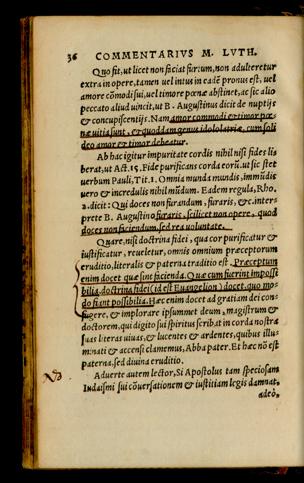 36 COMMENTARIVS M. LVTH.
Quo fit, ut licet non faciat furtum, non adulteretur
extra in opere, tamen uel intus in eadē pronus est, uel
amore cōmodi sui, uel timore pœnæ abstinet, ac sic alio
peccato aliud uincit, ut B. Augustinus dicit de nuptijs
& concupiscentijs. Nam amor commodi & timor pœ-
næ uitia sunt, & quoddam genus idololatriæ, cum soli
deo amor & timor debeatur.
Ab hac igitur impuritate cordis nihil nisi fides li
berat, ut Act. 15. Fide purificans corda eorū. ut sic stet
uerbum Pauli, Tit. 1. Omnia munda mundis, immūdis
uero & incredulis nihil mūdum. Eadem regula, Rho.
2. dicit: Qui doces non furandum, furaris, &c. inter-
prete B. Augustino furaris, scilicet non opere, quod
doces non faciendum, sed rea uoluntate.
Quare, nisi doctrina fidei, qua cor purificatur &
iustificatur, reueletur, omnis omnium præceptorum
eruditio, literalis & paterna traditio est. Præceptum
enim docet quæ sint facienda. Quæ cum fuerint impossi
bilia, doctrina fidei (id est Euangelion) docet, quo mo-
do fiant possibilia. Hæc enim docet ad gratiam dei con-
fugere, & implorare ipsummet deum, magistrum &
doctorem, qui digito sui spiritus scribat in corda nostra
suas literas uiuas, & lucentes & ardentes, quibus illu-
minati & accensi clamemus, Abba pater. Et hæc nō est
paterna, sed diuina eruditio.
Aduerte autem lector, Si Apostolus tam speciosam
Iudaismi sui cōuersationem & iustitiam legis damnat,
adeò,